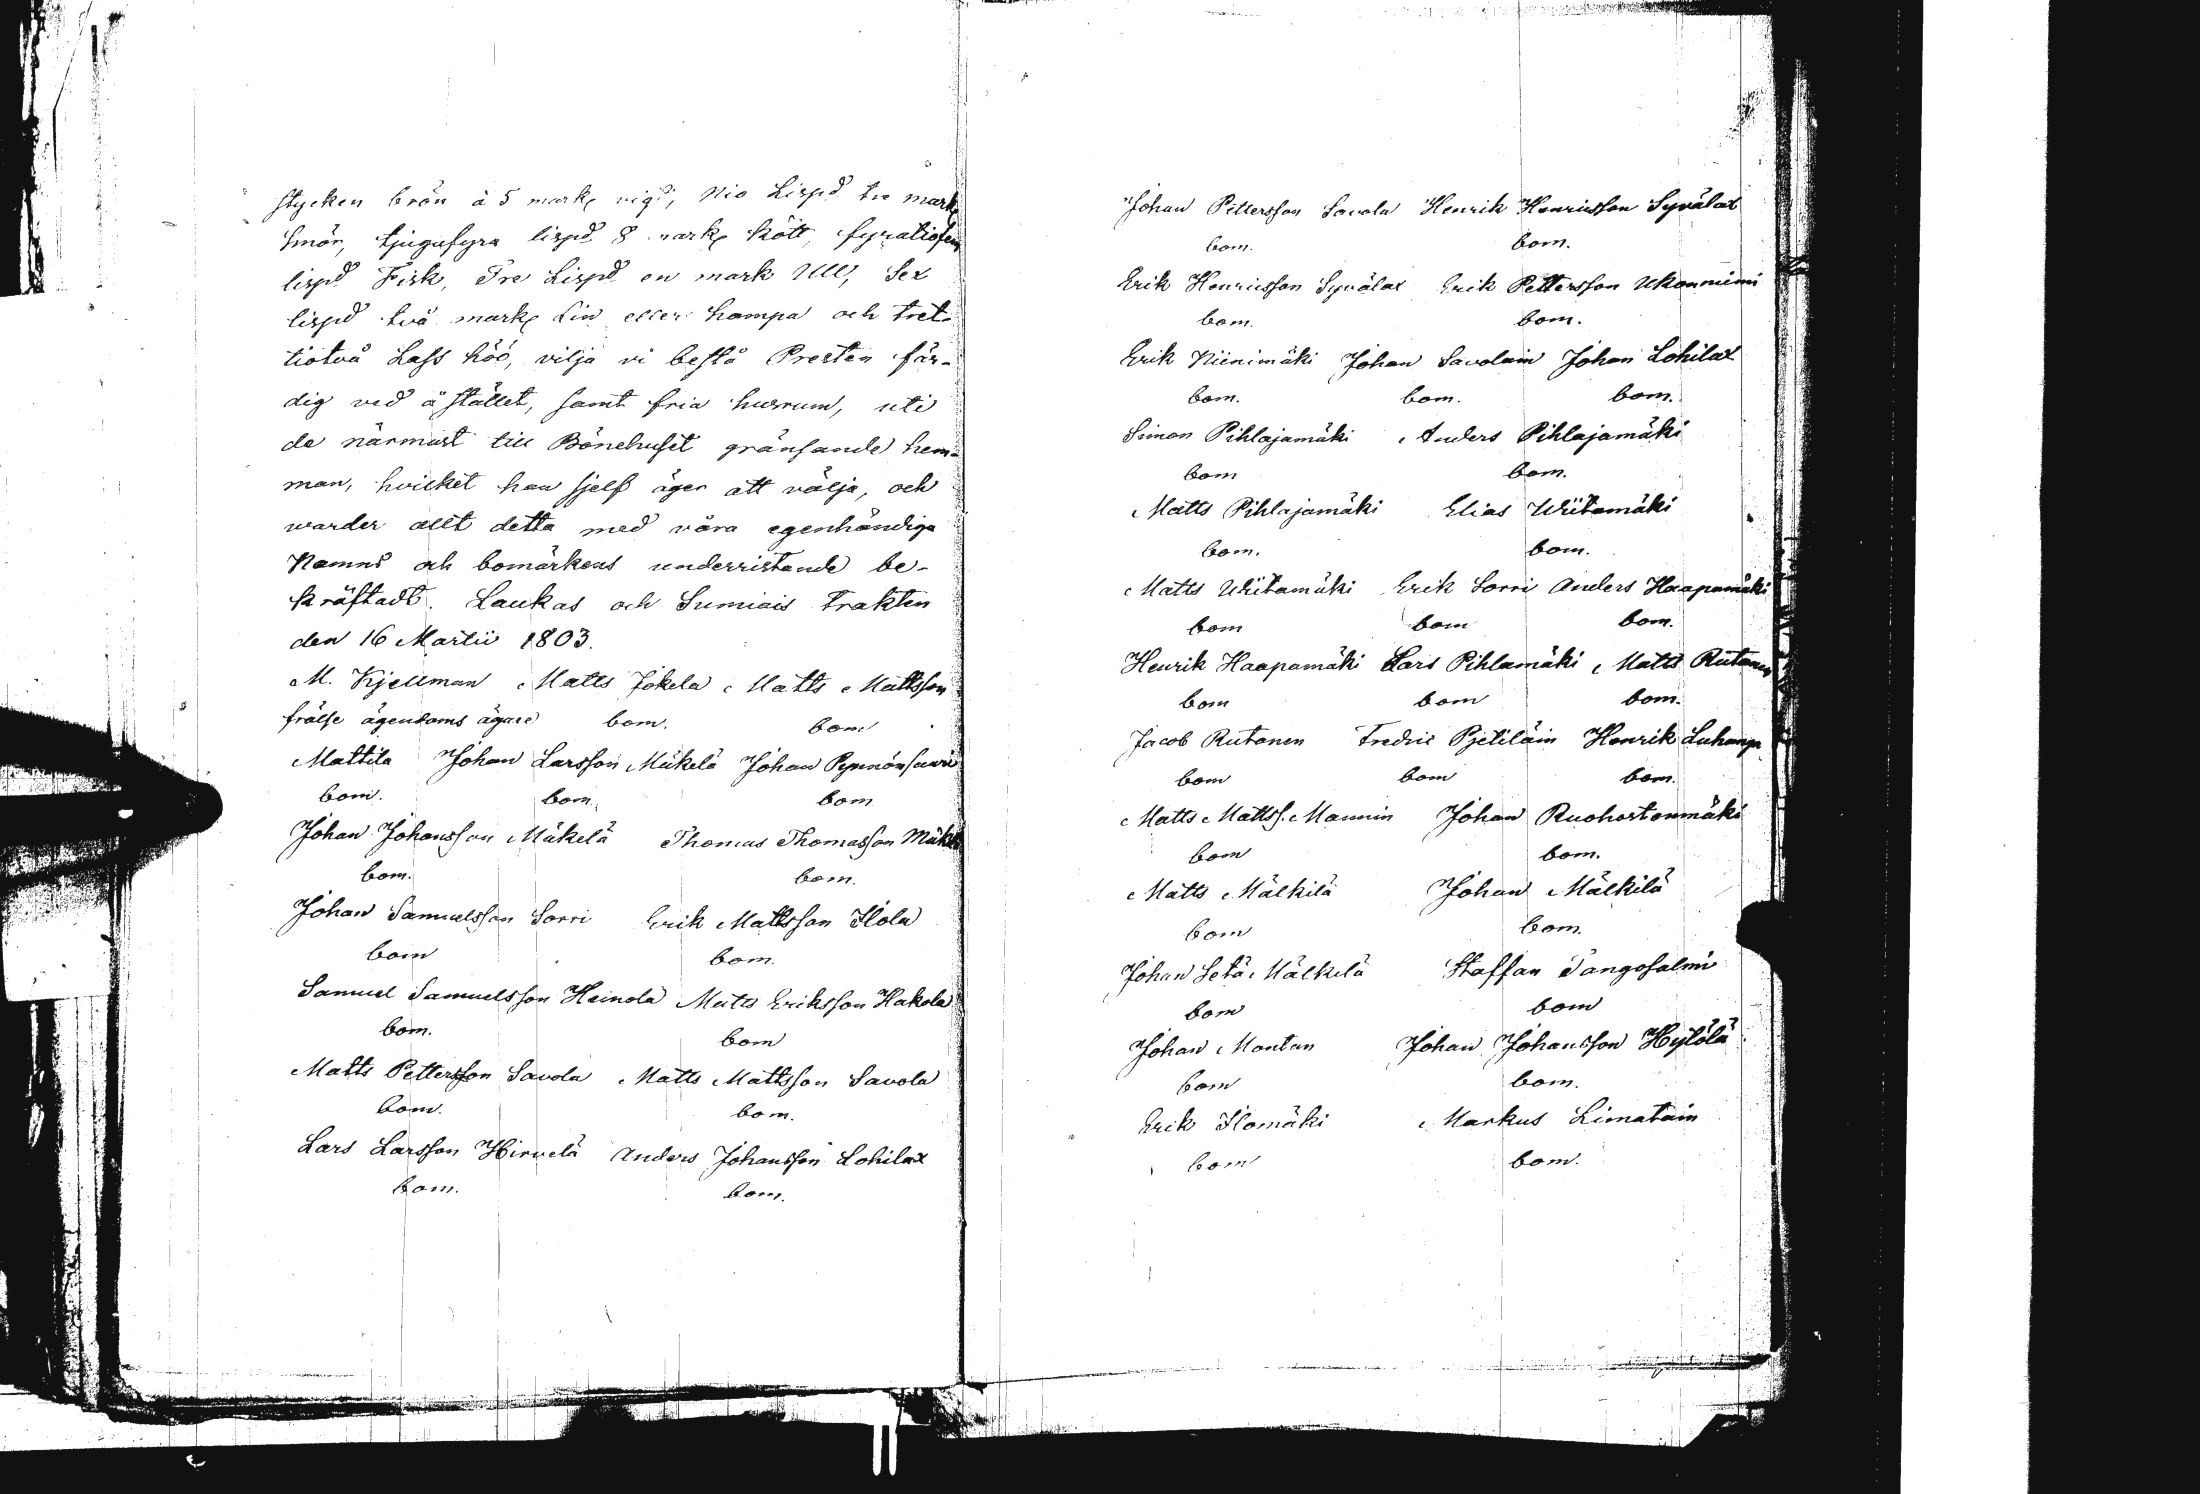 stycken brön à 5 marke vigt, Nio Lispd tre marke
smör, tjugufyra lispd 8 marke kött, fyratiofem
lispd Fisk, Tre Lispd en mark Ull, Sex
lispd två marke Lin eller hampa och tret-
tiotvå Lass höö, vilja vi bestå Presten fär-
dig ved å stället, samt fria husrum, uti
de närmast till Bönehuset gränsande hem-
man, hvilket han sjelf äger att välja, och
warder allt detta med våra egenhändiga
Namns och bomärkens underristande be-
kräftadt. Laukas och Sumiais Trakten
den 16 Martii 1803.
M. Kjellman Matts Jokela Matts Mattsson
frälse ägendoms ägare bom. bom
Mattila Johan Larsson Mäkelä Johan Pynnönsaari
bom. bom. bom
Johan Johansson Mäkelä Thomas Thomasson Mäkelä
bom. bom.
Johan Samuelsson Sorri Erik Mattsson Ilola
bom bom.
Samuel Samuelsson Heinola Matts Eriksson Hakola
bom. bom
Matts Pettersson Savola Matts Mattsson Savola
bom. bom.
Lars Larsson Hirvelä Anders Johansson Lohilax
bom. bom.
Johan Pettersson Savola Henrik Henricsson Syvälax
bom. bom.
Erik Henricsson Syvälax Erik Pettersson Ukonniemi
bom. bom.
Erik Niinimäki Johan Savolain Johan Lohilax
bom. bom. bom.
Simon Pihlajamäki Anders Pihlajamäki
bom bom.
Matts Pihlajamäki Elias Wiitamäki
bom. bom.
Matts Wiitamäki Erik Sorri Anders Haapamäki
bom bom bom.
Henrik Haapamäki Lars Pihlamäki Matts Rutanen
bom bom bom.
Jacob Rutanen Fredric Pjetiläin Henrik Luhanga
bom bom bom.
Matts Mattss. Mannin Johan Ruohostenmäki
bom bom.
Matts Mälkilä Johan Mälkilä
bom bom.
Johan Setä Mälkilä Staffan Tangosalmi
bom bom
Johan Montan Johan Johansson Hytölä
bom bom.
Erik Ilomäki Markus Limatain
bom bom.